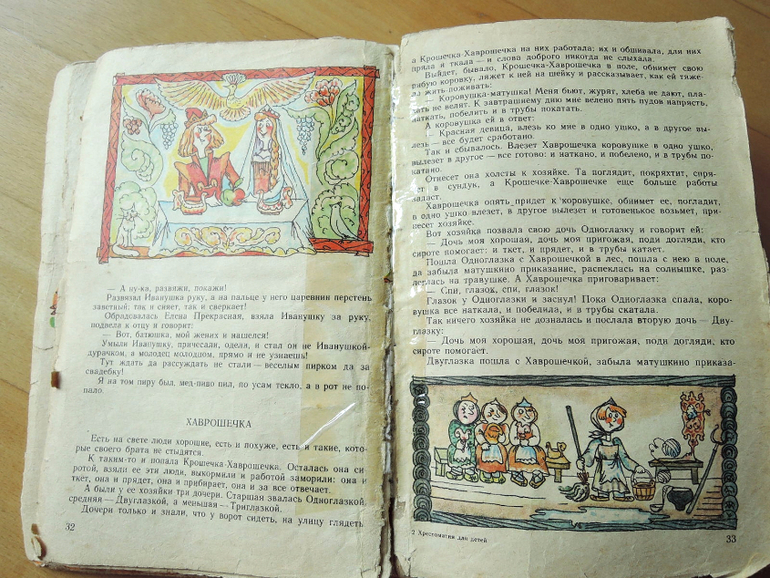 — А ну-ка, развяжи, покажи!
Развязал Иванушка руку, и на пальце у него царевнин перстень
заветный: так и сияет, так и сверкает!
Обрадовалась Елена Прекрасная, взяла Иванушку за руку,
подвела к отцу и говорит:
— Вот, батюшка, мой жених и нашелся!
Умыли Иванушку, причесали, одели, и стал он не Иванушкой-
дурачком, а молодец молодцом, прямо и не узнаешь!
Тут ждать да рассуждать не стали — веселым пирком да за
свадебку!
Я на том пиру был, мед-пиво пил, по усам текло, а в рот не по-
пало.
ХАВРОШЕЧКА
Есть на свете люди хорошие, есть и похуже, есть и такие, кото-
рые своего брата не стыдятся.
К таким-то и попала Крошечка-Хаврошечка. Осталась она си-
ротой, взяли ее эти люди, выкормили и работой заморили: она и
ткет, она и прядет, она и прибирает, она и за все отвечает.
А были у ее хозяйки три дочери. Старшая звалась Одноглазкой,
средняя — Двуглазкой, а меньшая — Триглазкой.
Дочери только и знали, что у ворот сидеть, на улицу глядеть
32
а Крошечка-Хаврошечка на них работала: их и обшивала, для них
пряла и ткала — и слова доброго никогда не слыхала.
Выйдет, бывало, Крошечка-Хаврошечка в поле, обнимет свою
рябую коровку, ляжет к ней на шейку и рассказывает, как ей тяже-
ло жить-поживать:
— Коровушка-матушка! Меня бьют, журят, хлеба не дают, пла-
кать не велят. К завтрашнему дню мне велено пять пудов напрясть,
наткать, побелить и в трубы покатать.
А коровушка ей в ответ:
— Красная девица, влезь ко мне в одно ушко, а в другое вы-
лезь — все будет сработано.
Так и сбывалось. Влезет Хаврошечка коровушке в одно ушко,
вылезет в другое — все готово: и наткано, и побелено, и в трубы по-
катано.
Отнесет она холсты к хозяйке. Та поглядит, покряхтит, спря-
чет в сундук, а Крошечке-Хаврошечке еще больше работы
задаст.
Хаврошечка опять придет к коровушке, обнимет ее, погладит,
в одно ушко влезет, в другое вылезет и готовенькое возьмет, при-
несет хозяйке.
Вот хозяйка позвала свою дочь Одноглазку и говорит ей:
— Дочь моя хорошая, дочь моя пригожая, поди догляди, кто
сироте помогает: и ткет, и прядет, и в трубы катает.
Пошла Одноглазка с Хаврошечкой в лес, пошла с нею в поле,
да забыла матушкино приказание, распеклась на солнышке, раз-
леглась на травушке. А Хаврошечка приговаривает:
— Спи, глазок, спи, глазок!
Глазок у Одноглазки и заснул! Пока Одноглазка спала, коро-
вушка все наткала, и побелила, и в трубы скатала.
Так ничего хозяйка не дозналась и послала вторую дочь — Дву-
глазку:
— Дочь моя хорошая, дочь моя пригожая, поди догляди, кто
сироте помогает.
Двуглазка пошла с Хаврошечкой, забыла матушкино приказа-
2 Хрестоматия для детей
33